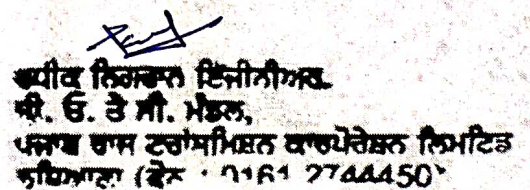 ਵਧੀਕ ਨਿਗਰਾਨ ਇੰਜੀਨੀਅਰ
ਪੀ. ਓ. ਤੇ ਸੀ. ਮੰਡਲ,
ਪੰਜਾਬ ਰਾਜ ਟਰਾਂਸਮਿਸ਼ਨ ਕਾਰਪੋਰੇਸ਼ਨ ਲਿਮਟਿਡ
ਲੁਧਿਆਣਾ (ਫੋਨ : 0161 2744450)